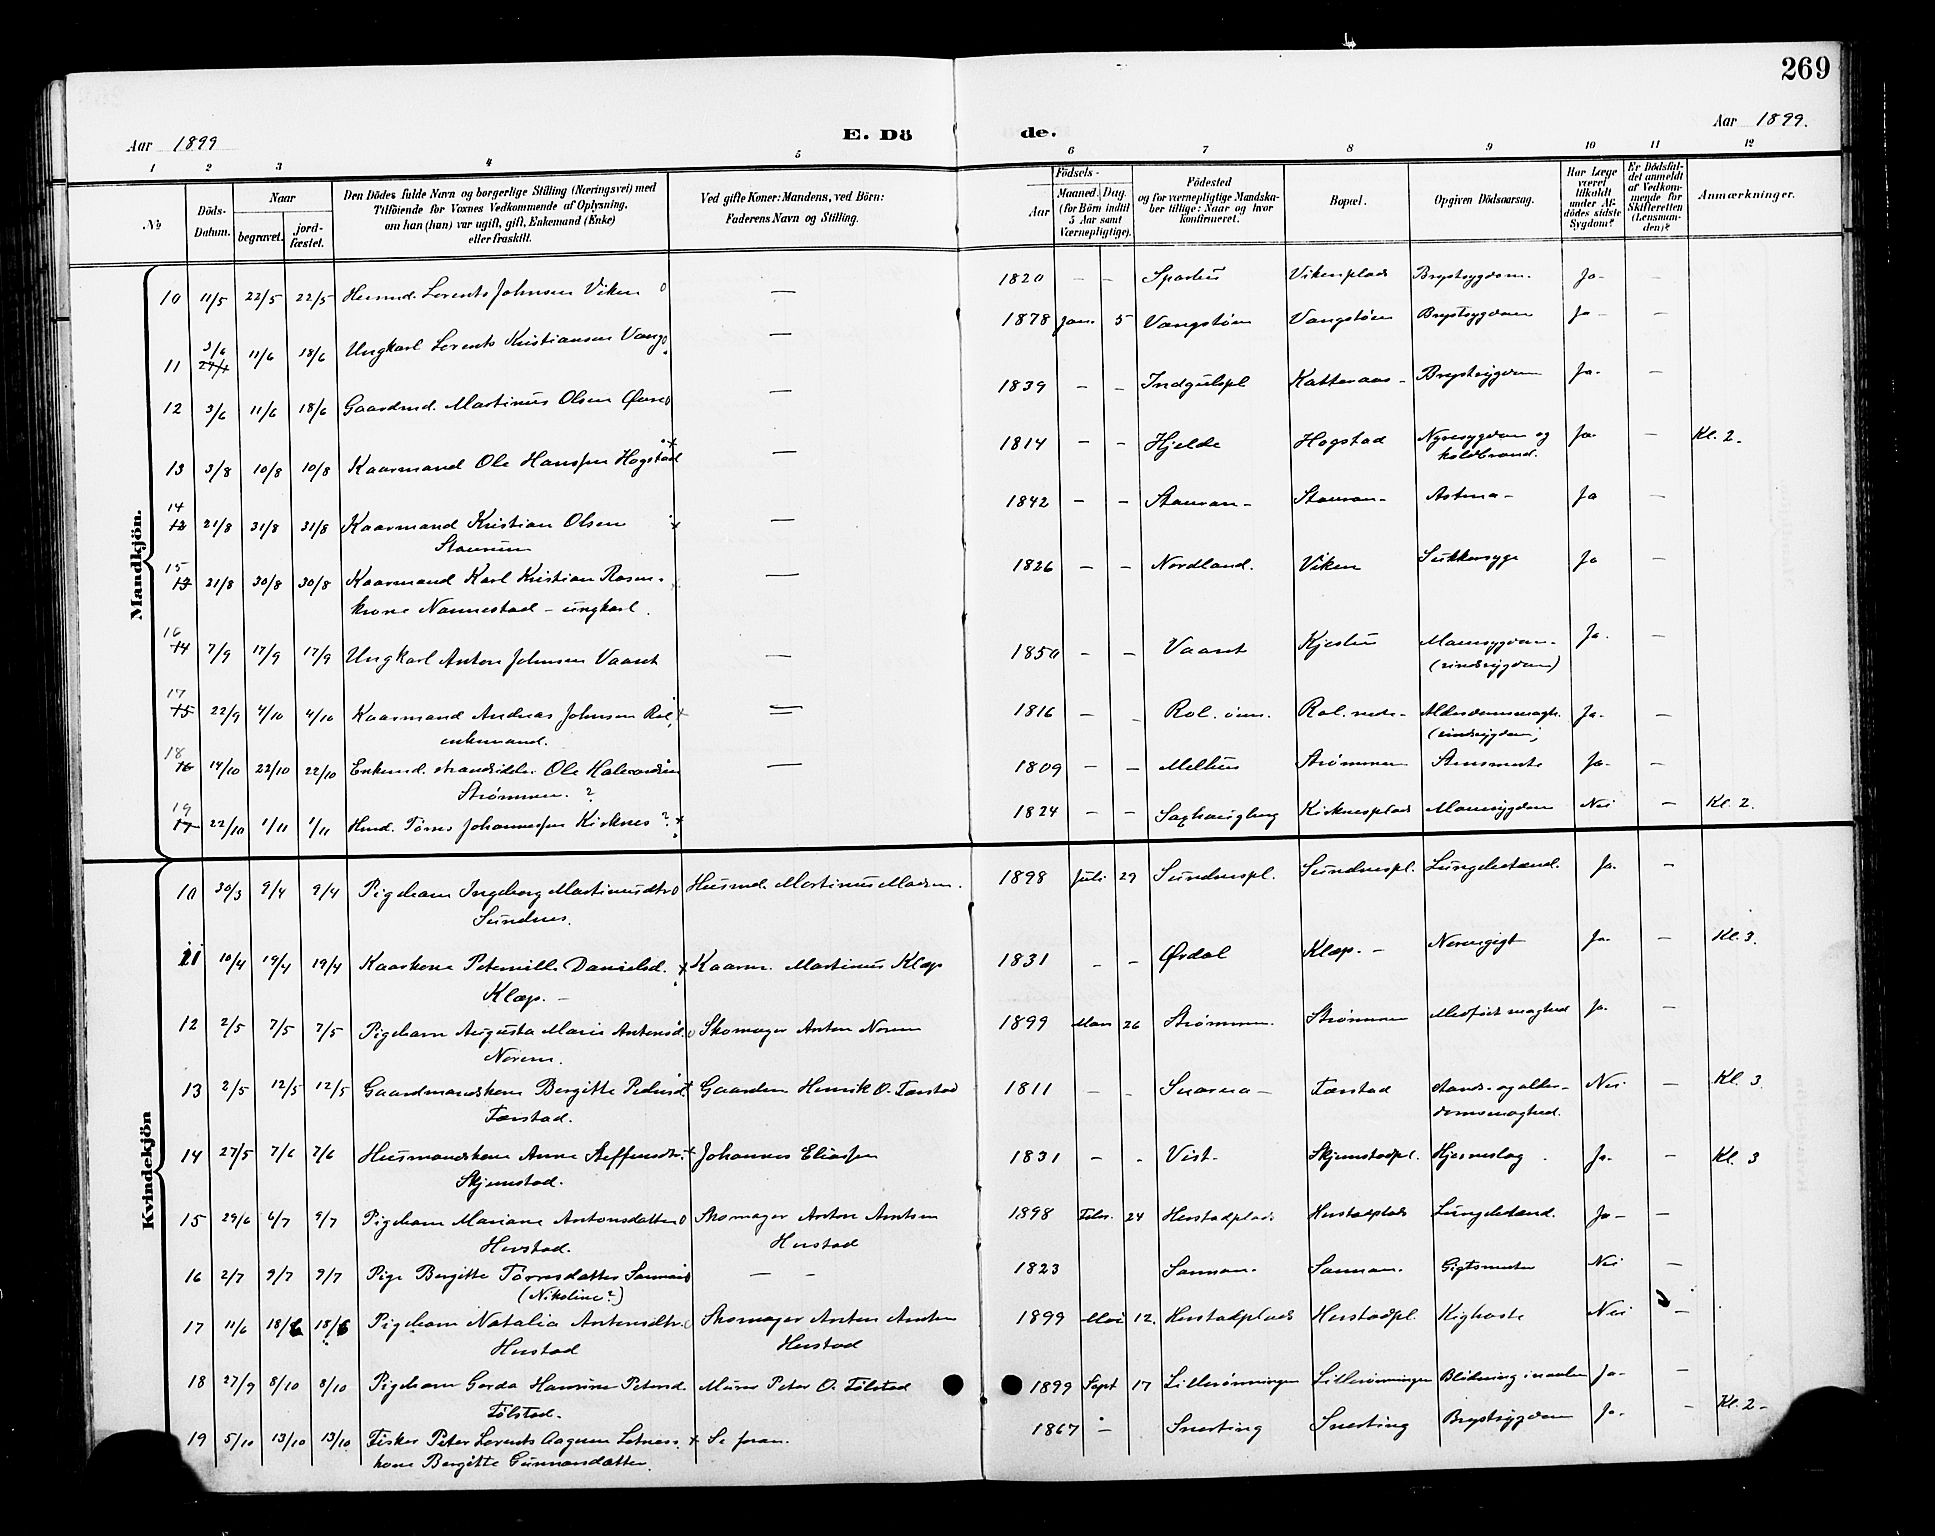 269
Aar 1899
E. Dö
de.
Aar 1899.
1 2 3 4 5 6 7 8 9 10 11 12
№
Döds-Datum.
Naar
begravet.
jord-fæstet.
Den Dödes fulde Navn og borgerlige Stilling (Næringsvei) med
Tilföiende for Voxnes Vedkommende af Oplysning,
om han (hun) var ugift, gift, Enkemand (Enke)
eller fraskilt.
Ved gifte Koner: Mandens, ved Börn:
Faderens Navn og Stilling.
Födsels-
Aar
Maaned.
Dag.
(for Börn indtil
5 Aar samt
Værnepligtige).
Födested
og for værnepligtige Mandska-
ber tillige: Naar og hvor
konfirmeret.
Bopæl.
Opgiven Dödsaarsag.
Har Læge
været
tilkaldt
under Af-
dödes sidste
Sygdom?
Er Dödsfal-
det anmeldt
af Vedkom-
mende for
Skifteretten
(Lensman-
den)?
Anmærkninger.
Mandkjön.
10 11/5 22/5 22/5 Husmd. Lorents Johnsen Viken — 1820 — — Sparbu Vikenplads Brystsygdom. Ja —
11 3/6 11/6 18/6 Ungkarl Lorents Kristiansen Vang — 1878 Jan. 5 Vangstøen Vangstøen Brystsygdom Ja —
12 3/6 11/6 18/6 Gaardmd. Martinus Olsen — 1839 — — Katteraas Brystsygdom Ja —
13 3/8 10/8 10/8 Kaarmand Ole Hanssen Hogstad — 1814 — — Hjelde Hogstad Nyresygdom og
koldbrand. Ja — Kl. 2.
14 21/8 31/8 31/8 Kaarmand Kristian Olsen
— 1842 — — Astma — Ja —
15 21/8 30/8 30/8 Kaarmand Karl Kristian Rosen-
krone Nannestad — ungkarl. — 1826 — — Nordland. Viken Sukkersyge Ja —
16 14 7/9 17/9 17/9 Ungkarl Anton Johnsen Vaant — 1850 — — Vaant Mavesygdom — Ja —
17 15 22/9 4/10 4/10 Kaarmand Andreas Johnsen Rol,
enkemand. — 1816 — — Rol. Rol. Ja —
18 16 14/10 22/10 22/10 Enkemd. strandsidder Ole
Strømmen. ? — 1809 — — Melhus Strømmen Ja —
19 17 22/10 1/11 1/11 Husmd. Tørres Johannessen Kirknes ? 1824 — — Saxhaugberg Kirknesplads Mavesygdom Nei — Kl. 2.
Kvindekjön
10 30/3 9/4 9/4 Pigebarn Ingeborg Martinusdtr
Sundnes. Husmd. Martinus Madsen. 1898 Juli 29 Sundnespl. Sundnespl. Lungebetænd. Ja —
11 10/4 19/4 19/4 Kaarkone Peternille Danielsd.
Klæp. — Kaarm. Martinus Klæp 1831 — — Ørdal Klæp. — Nervegigt Ja — Kl. 3.
12 2/5 7/5 7/5 Pigebarn Augusta Marie Antonsd.
Norem. Skomager Anton Norem 1899 Mars 26 Strømmen. Strømmen Medfødt svaghed Ja —
13 2/5 12/5 12/5 Gaardmandskone Bergitte Pedersd.
Tærstad. Gaardm Henrik O. Tærstad 1811 — — Snaasa — Tærstad Aands- og alder-
domssvaghed. Nei — Kl. 3.
14 27/5 7/6 7/6 Husmandskone Anne Steffensdtr.
Skjemstad. Johannes Eliassen 1831 — — Vist Skjemstadpl. Hjerneslag. Ja — Kl. 3
15 29/6 6/7 9/7 Pigebarn Mariane Antonsdatter
Herstad. Skomager Anton Arntsen
Herstad 1898 Febr. 24 Herstadplads Herstadplads Lungebetænd. Ja —
16 2/7 9/7 9/7 Pige Bergitte Tørresdatter
(Nikoline?) — — 1823 Sannan. Sannan. Nei —
17 11/6 18/6 18/6 Pigebarn Natalia Antonsdtr.
Herstad Skomager Anton Arntsen
Herstad 1899 Mai 12. Herstadplads Herstadpl. Kighoste Nei —
18 27/9 8/10 8/10 Pigebarn Gerda Petersd.
Tølstad. Murer Peter O. Tølstad 1899 Sept 17 Lillerønningen Lillerønningen Ja —
19 5/10 13/10 13/10 Fisker Peter Lorents Letnes
kone Bergitte Gunnarsdatter. Se foran. 1867 — Snerting Snerting Brystsygdom Ja — Kl. 2 —